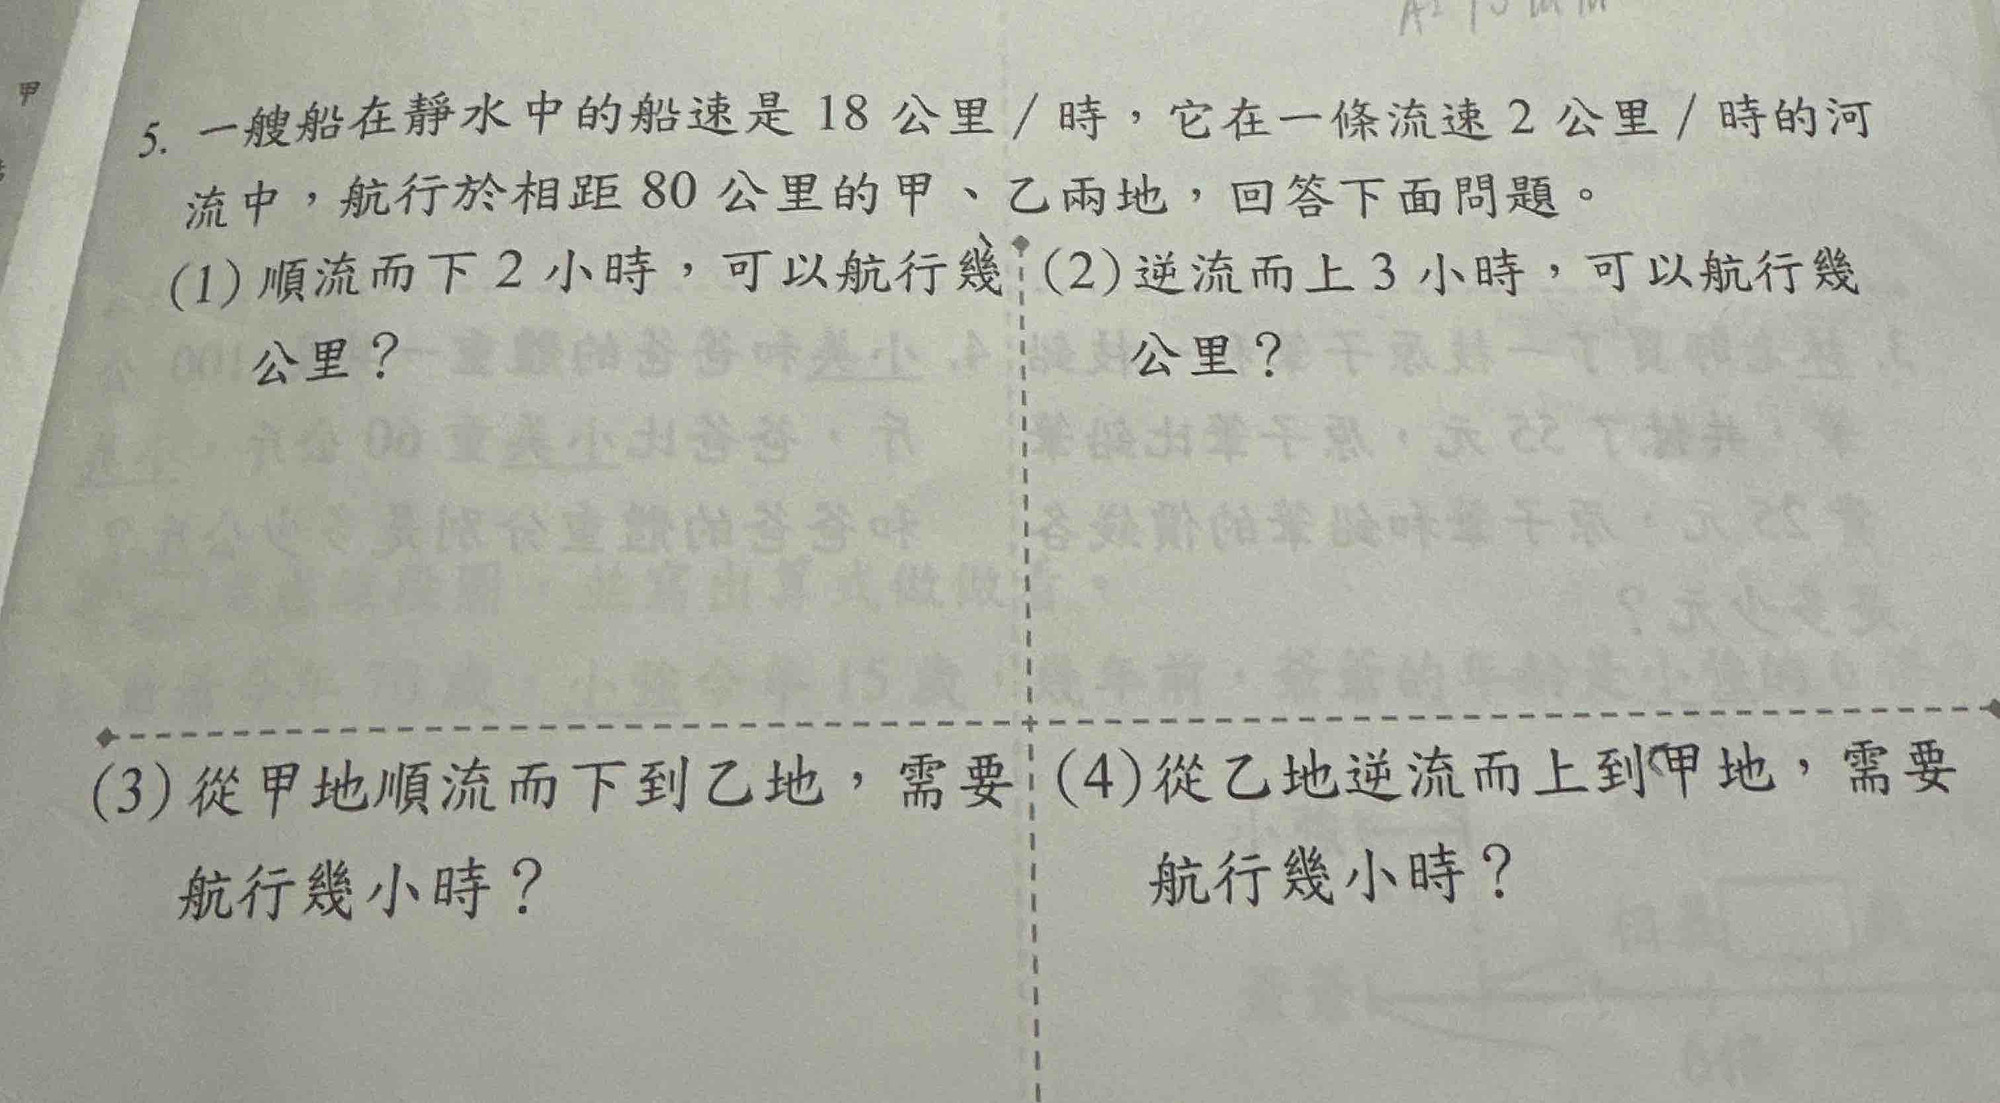 甲
5. 一艘船在靜水中的船速是 18 公里/時,它在一條流速 2 公里/時的河
流中,航行於相距 80 公里的甲、乙兩地,回答下面問題。
(1) 順流而下 2 小時,可以航行幾
公里?
(2) 逆流而上 3 小時,可以航行幾
公里?
(3) 從甲地順流而下到乙地,需要
航行幾小時?
(4) 從乙地逆流而上到甲地,需要
航行幾小時?